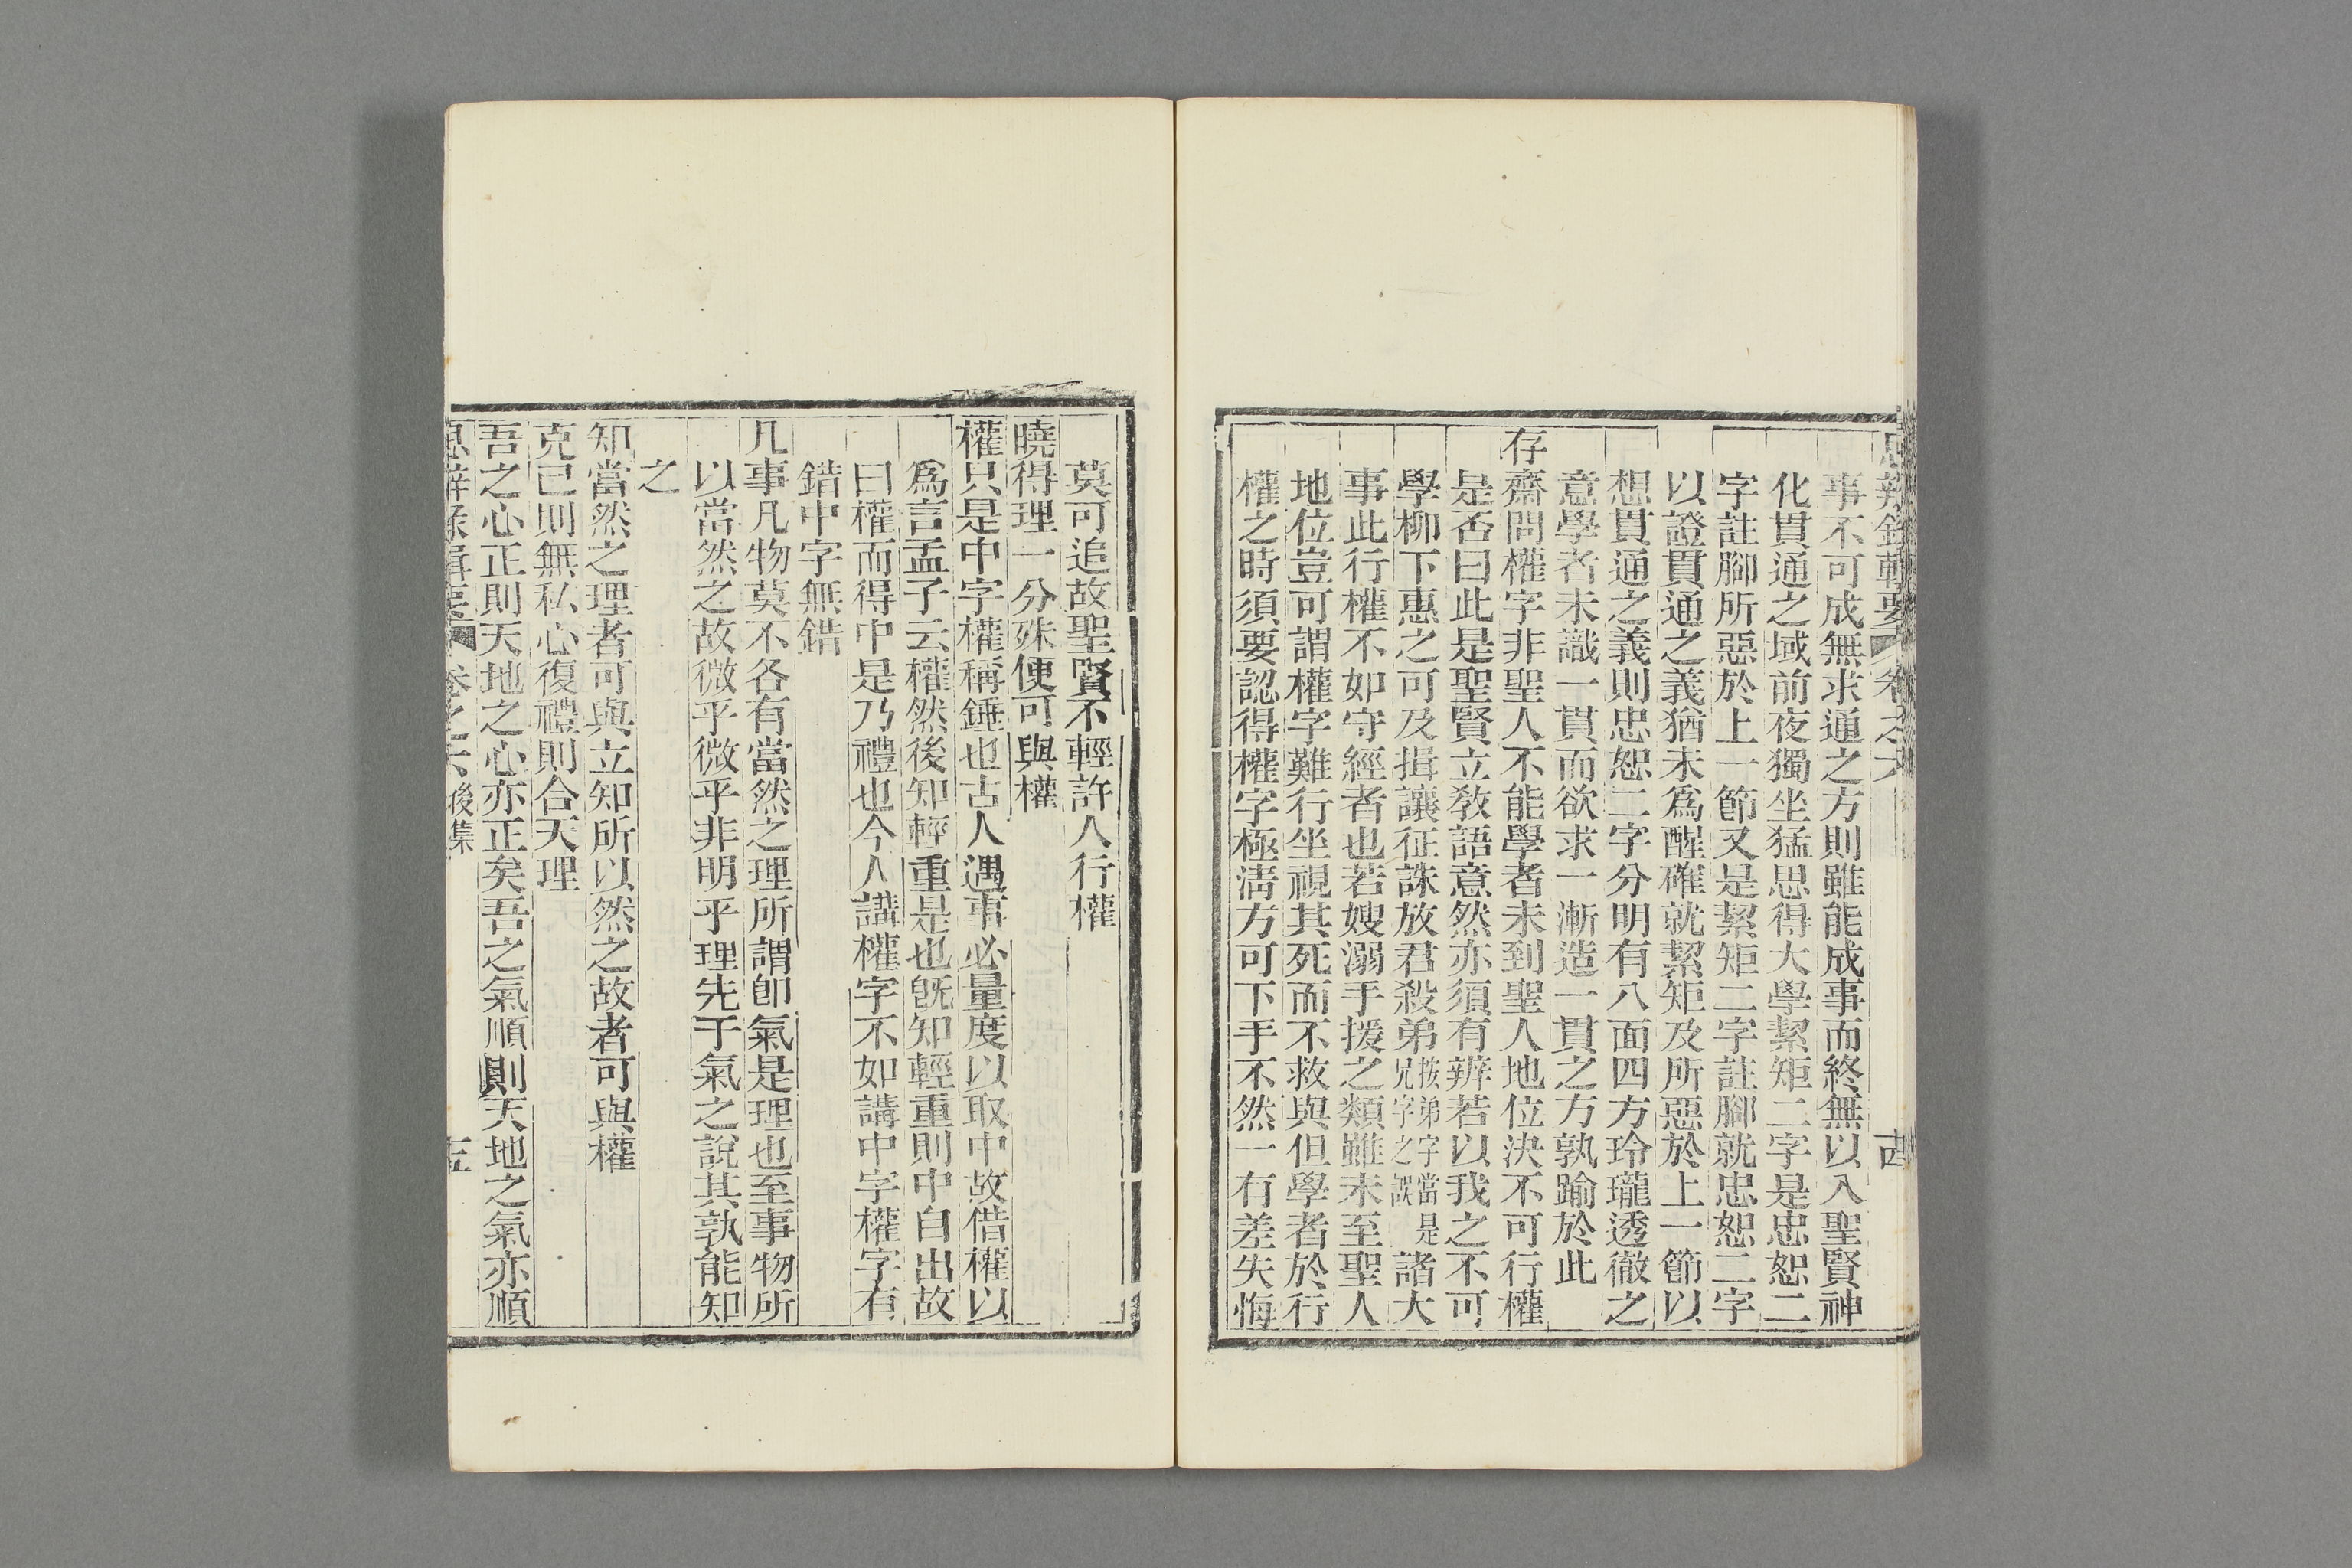 思辨錄輯要 卷之六 十四
事不可成無求通之方則雖能成事而終無以入聖賢神
化貫通之域前夜獨坐猛思得大學絜矩二字是忠恕二
字註腳所惡於上一節又是絜矩二字註腳就忠恕二字
以證貫通之義猶未爲醒確就絜矩及所惡於上一節以
想貫通之義則忠恕二字分明有八面四方玲瓏透徹之
意學者未識一貫而欲求一漸造一貫之方孰踰於此
存齋問權字非聖人不能學者未到聖人地位決不可行權
是否曰此是聖賢立敎語意然亦須有辨若以我之不可
學柳下惠之可及揖讓征誅放君殺弟按弟字當是兄字之誤諸大
事此行權不如守經者也若嫂溺手援之類雖未至聖人
地位豈可謂權字難行坐視其死而不救與但學者於行
權之時須要認得權字極淸方可下手不然一有差失悔
莫可追故聖賢不輕許人行權
曉得理一分殊便可與權
權只是中字權稱錘也古人遇事必量度以取中故借權以
爲言孟子云權然後知輕重是也旣知輕重則中自出故
曰權而得中是乃禮也今人講權字不如講中字權字有
錯中字無錯
凡事凡物莫不各有當然之理所謂卽氣是理也至事物所
以當然之故微乎微乎非明乎理先于氣之說其孰能知
之
知當然之理者可與立知所以然之故者可與權
克己則無私心復禮則合天理
吾之心正則天地之心亦正矣吾之氣順則天地之氣亦順
思辨錄輯要 卷之六後集 十五